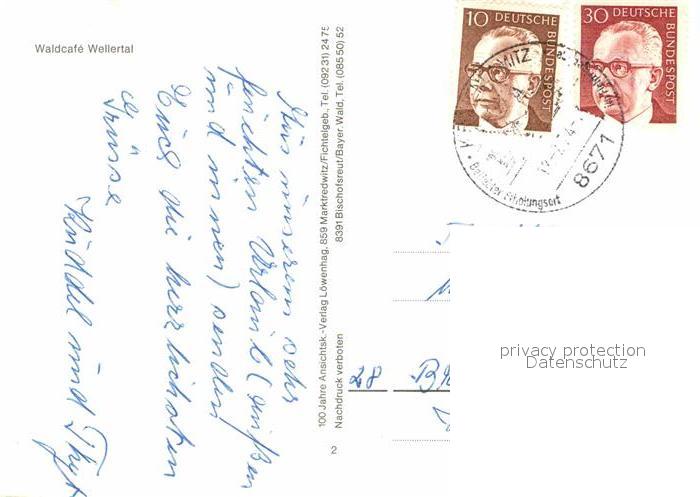 Waldcafé Wellertal
Aus unserem sehr
feuchten Urlaub (außen
und innen) senden
Euch die herzlichsten
Grüsse
und
100 Jahre Ansichtsk.-Verlag Löwenhag, 859 Marktredwitz/Fichtelgeb., Tel. (09231) 2475
8391 Bischofsreut/Bayer. Wald, Tel. (08550) 52
Nachdruck verboten
2
10 DEUTSCHE BUNDESPOST
30 DEUTSCHE BUNDESPOST
8671
Beliebter Erholungsort
28
privacy protection
Datenschutz